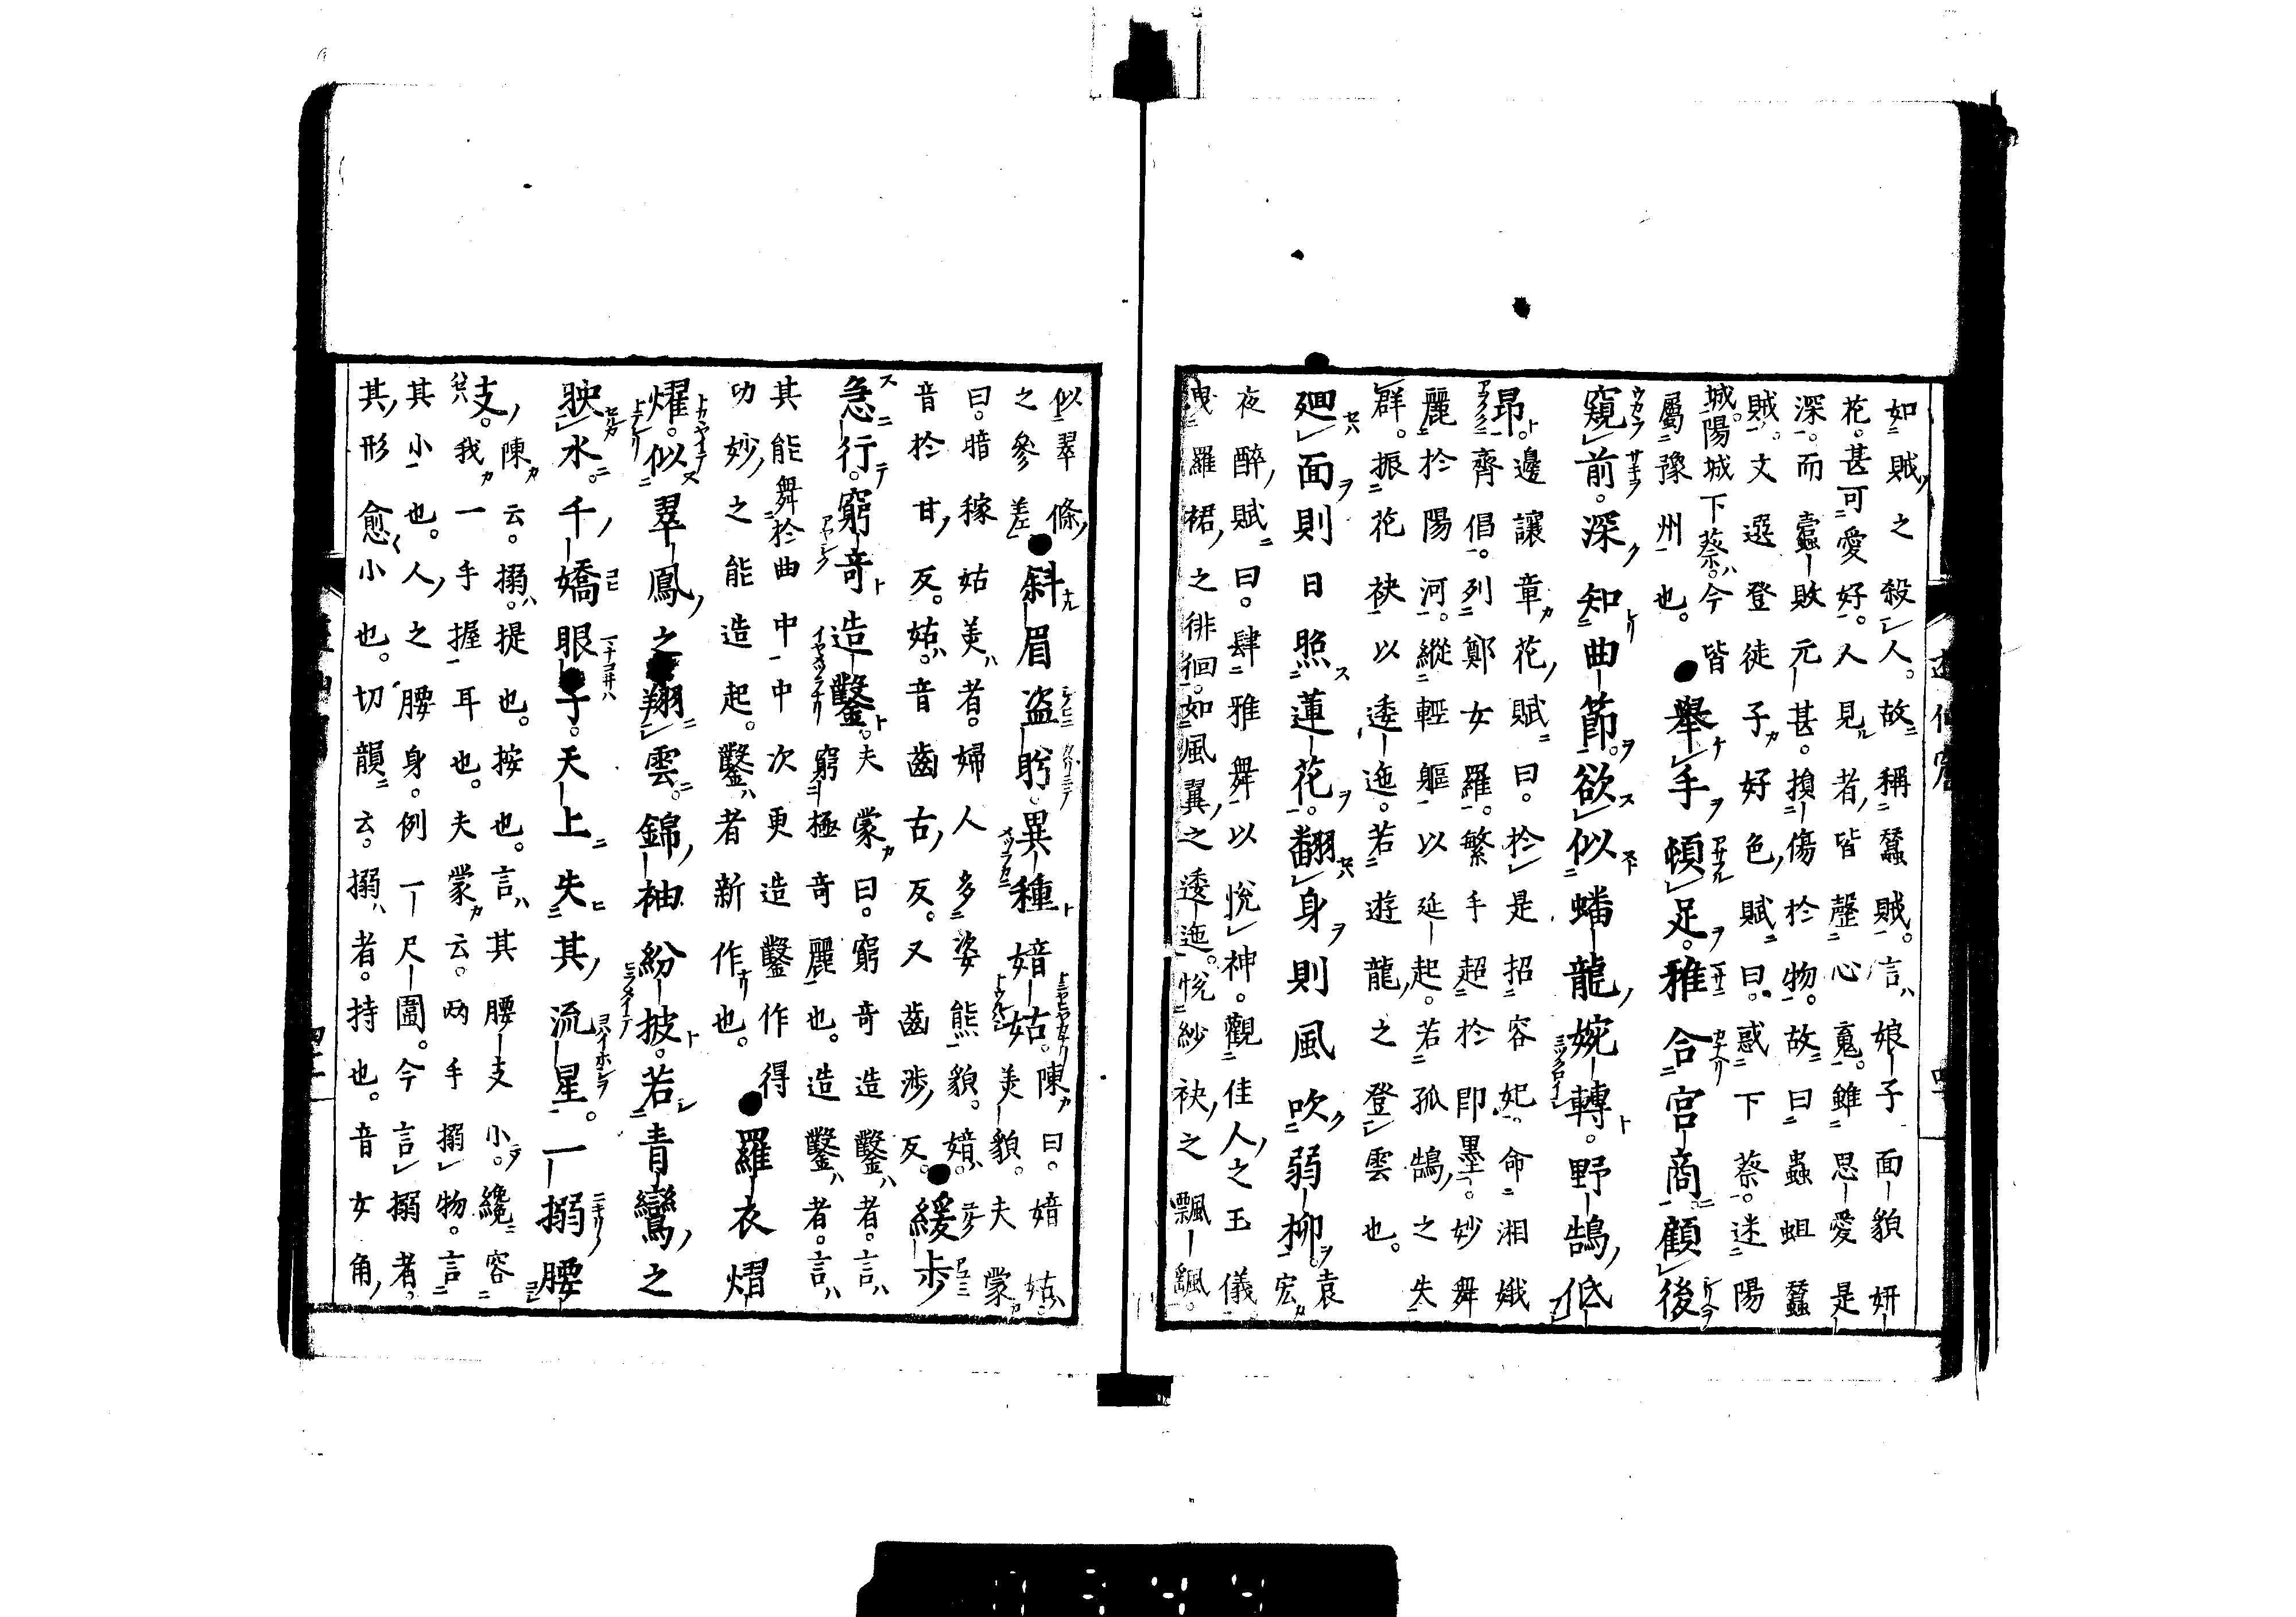 如賊之殺人。故稱蠶賊。言娘子面貌妍
花。甚可愛好。人見者皆瑿心䰟。雖思愛是
深。而蠧敗元甚。損傷於物。故曰蟲蛆蠶
賊。文選登徒子好色賦曰。惑下蔡。迷陽
城。陽城下蔡。今皆
屬豫州也。舉手頓足。雅合宮商。顧後
窺前。深知曲節。欲似蟠龍婉轉。野鵠低
昂。邊讓章花賦曰。於是招容妃。命湘娥
齊倡。列鄭女羅。繁手超於即墨。妙舞
麗於陽河。縱輕軀以延起。若孤鵠之失
群。振花袂以逶迤。若遊龍之登雲也。
廻面則日照蓮花。翻身則風吹弱柳。袁宏
夜酔賦曰。肆雅舞以悅神。觀佳人之玉儀
洩羅裙之徘徊。如風翼之逶迤。悅紗袂之飄颻。
似翠條
之參差。斜眉盗盻。異種婄姑。陳曰。婄姑
曰。暗稼姑美者。婦人多姿態貌。美貌。夫蒙
音於甘反。姑音齒古反。又齒渉反。緩步
急行。窮奇造鑿。夫蒙曰。窮奇造鑿者。言
其能舞於曲中中次更造鑿作得
窮極奇麗也。造鑿者。言
功妙之能造起。鑿者新作也。羅衣熠
燿。似翠鳳之翔雲。錦袖紛披。若青鸞之
映水。千嬌眼子。天上失其流星。一搦腰
支。陳云。搦。提也。按也。言其腰支小。纔容
我一手握耳也。夫蒙云。两手搦物。言
其小也。人之腰身。例一尺圍。今言搦者。
其形愈小也。切韻云。搦者。持也。音女角